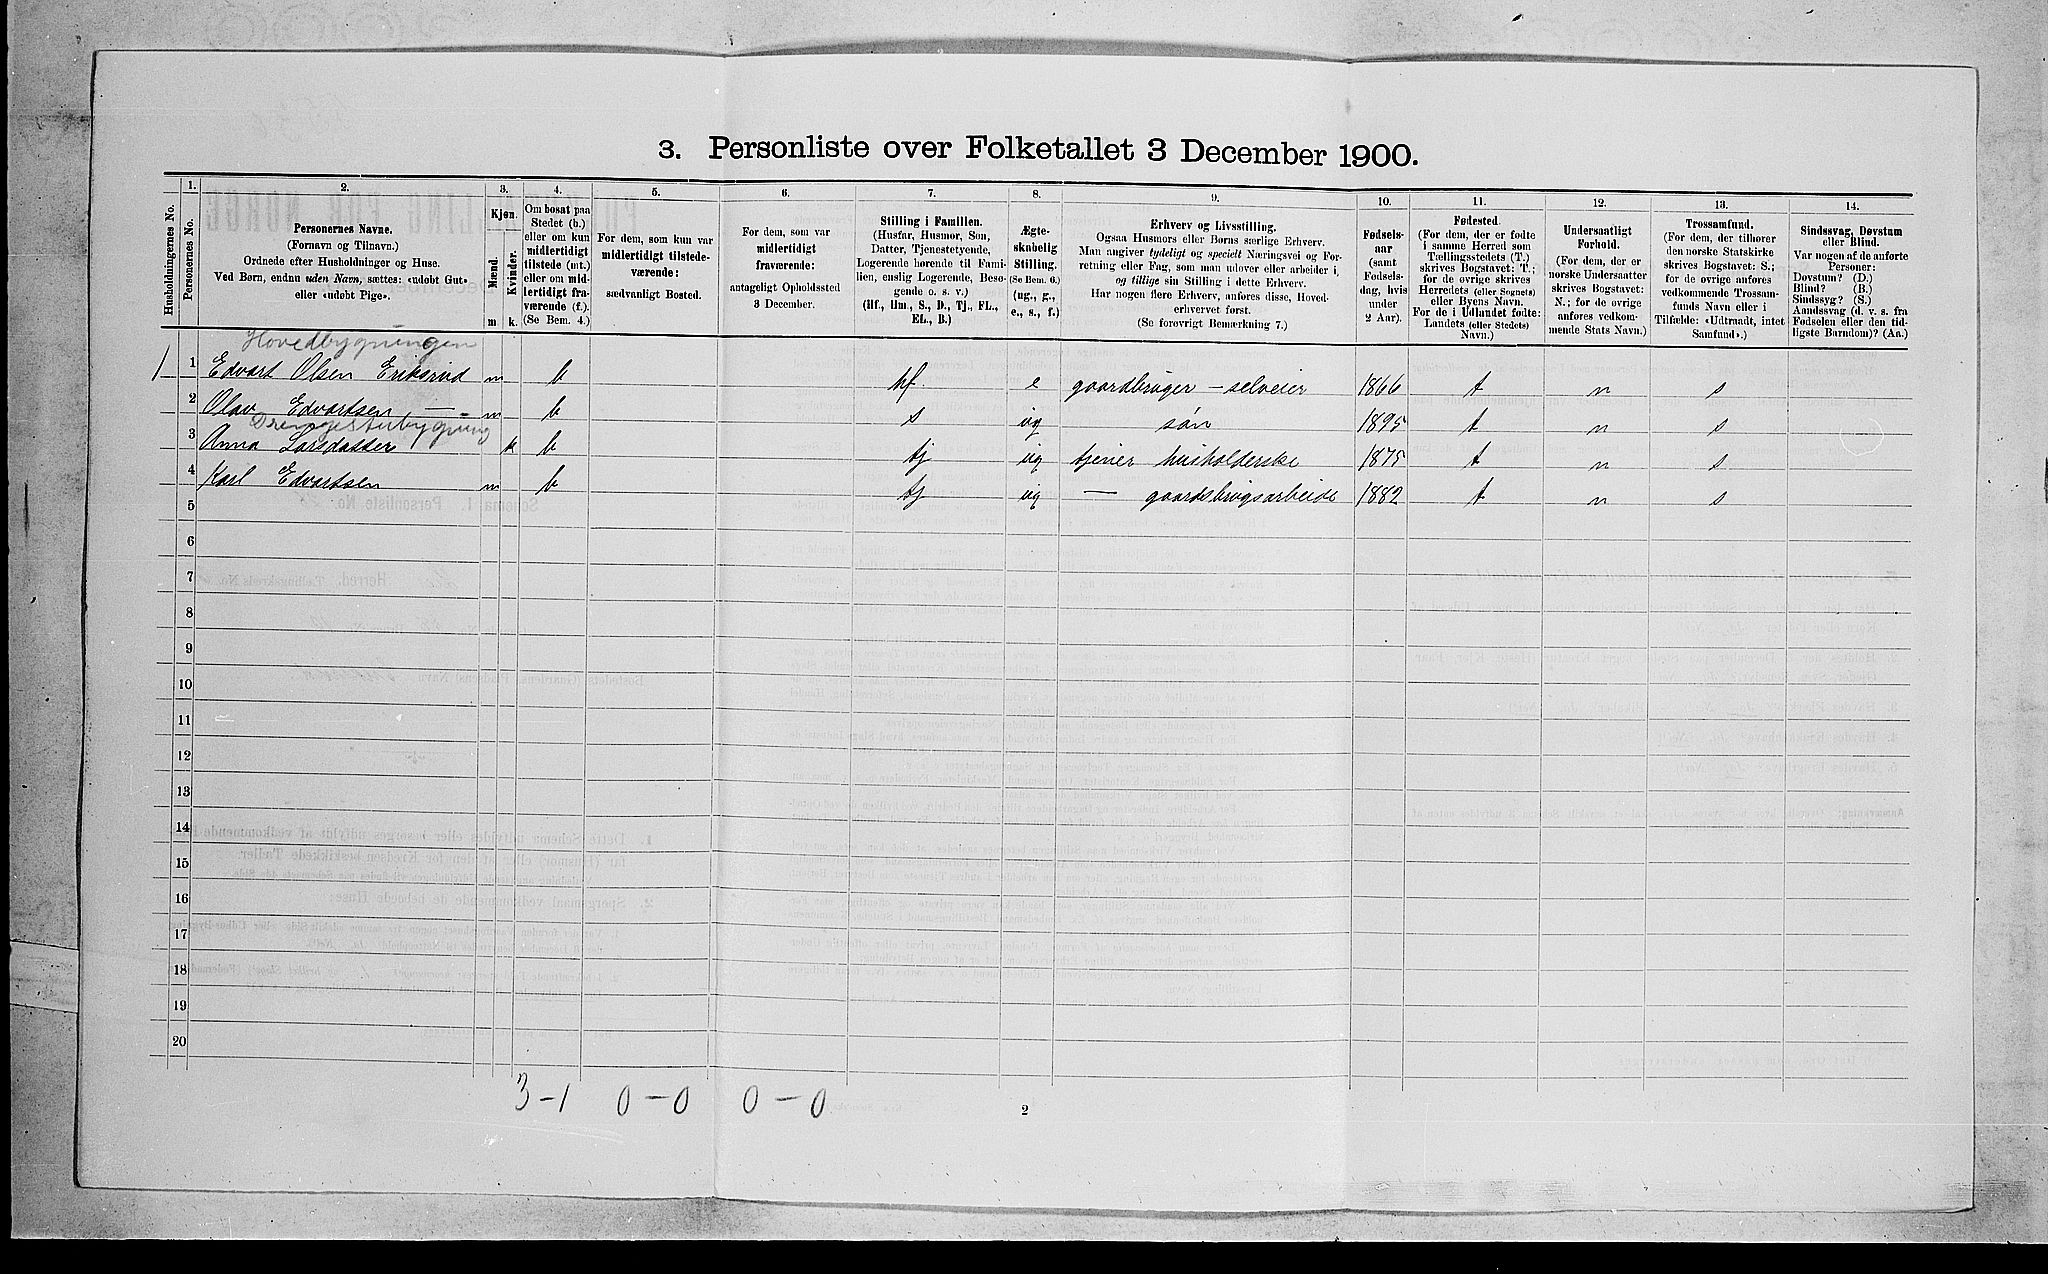 3. Personliste over Folketallet 3 December 1900.
Husholdningernes No.
1.
Personernes No.
2.
Personernes Navne.
(Fornavn og Tilnavn.)
Ordnede efter Husholdninger og Huse.
Ved Børn, endnu uden Navn, sættes: «udøbt Gut»
eller «udøbt Pige».
3.
Kjøn.
Mænd.
Kvinder.
m
k.
4.
Om bosat paa
Stedet (b.)
eller om kun
midlertidigt
tilstede (mt.)
eller om mid-
lertidigt fra-
værende (f.).
(Se Bem. 4.)
5.
For dem, som kun var
midlertidigt tilstede-
værende:
sædvanligt Bosted.
6.
For dem, som var
midlertidigt
fraværende:
antageligt Opholdssted
3 December.
7.
Stilling i Familien.
(Husfar, Husmor, Søn,
Datter, Tjenestetyende,
Logerende hørende til Fami-
lien, enslig Logerende, Besø-
gende o. s. v.)
(Hf., Hm., S., D., Tj., FL.,
EL., B.)
8.
Ægte-
skabelig
Stilling.
(Se Bem. 6.)
(ug., g.,
e., s., f.)
9.
Erhverv og Livsstilling.
Ogsaa Husmors eller Børns særlige Erhverv.
Man angiver tydeligt og specielt Næringsvei og For-
retning eller Fag, som man udøver eller arbeider i,
og tillige sin Stilling i dette Erhverv.
Har nogen flere Erhverv, anføres disse, Hoved-
erhvervet først.
(Se forøvrigt Bemærkning 7.)
10.
Fødsels-
aar
(samt
Fødsels-
dag, hvis
under
2 Aar).
11.
Fødested.
(For dem, der er fødte
i samme Herred som
Tællingsstedets (T.)
skrives Bogstavet: T.;
for de øvrige skrives
Herredets (eller Sognets)
eller Byens Navn.
For de i Udlandet fødte:
Landets (eller Stedets)
Navn.)
12.
Undersaatligt
Forhold.
(For dem, der er
norske Undersaatter
skrives Bogstavet:
N.; for de øvrige
anføres vedkom-
mende Stats Navn.)
13.
Trossamfund.
(For dem, der tilhører
den norske Statskirke
skrives Bogstavet: S.;
for de øvrige anføres
vedkommende Trossam-
funds Navn eller i
Tilfælde: «Udtraadt, intet
Samfund».)
14.
Sindssvag, Døvstum
eller Blind.
Var nogen af de anførte
Personer:
Døvstum? (D.)
Blind? (B.)
Sindssyg? (S.)
Aandssvag (d. v. s. fra
Fødselen eller den tid-
ligste Barndom)? (Aa.)
Hovedbygningen
1 1 Edvart Olsen Eriksrud m b hf e gaardbruger – selveier 1866 t n s
2 Olav Edvartsen – m b s ug søn 1895 t n s
Drengestubygning
3 Anna Larsdatter k b tj ug tjener husholderske 1875 t n s
4 Karl Edvartsen m b tj ug — gaardsbrugsarbeide 1882 t n s
5
6
7
8
9
10
11
12
13
14
15
16
17
18
19
20
3–1 0–0 0–0
2